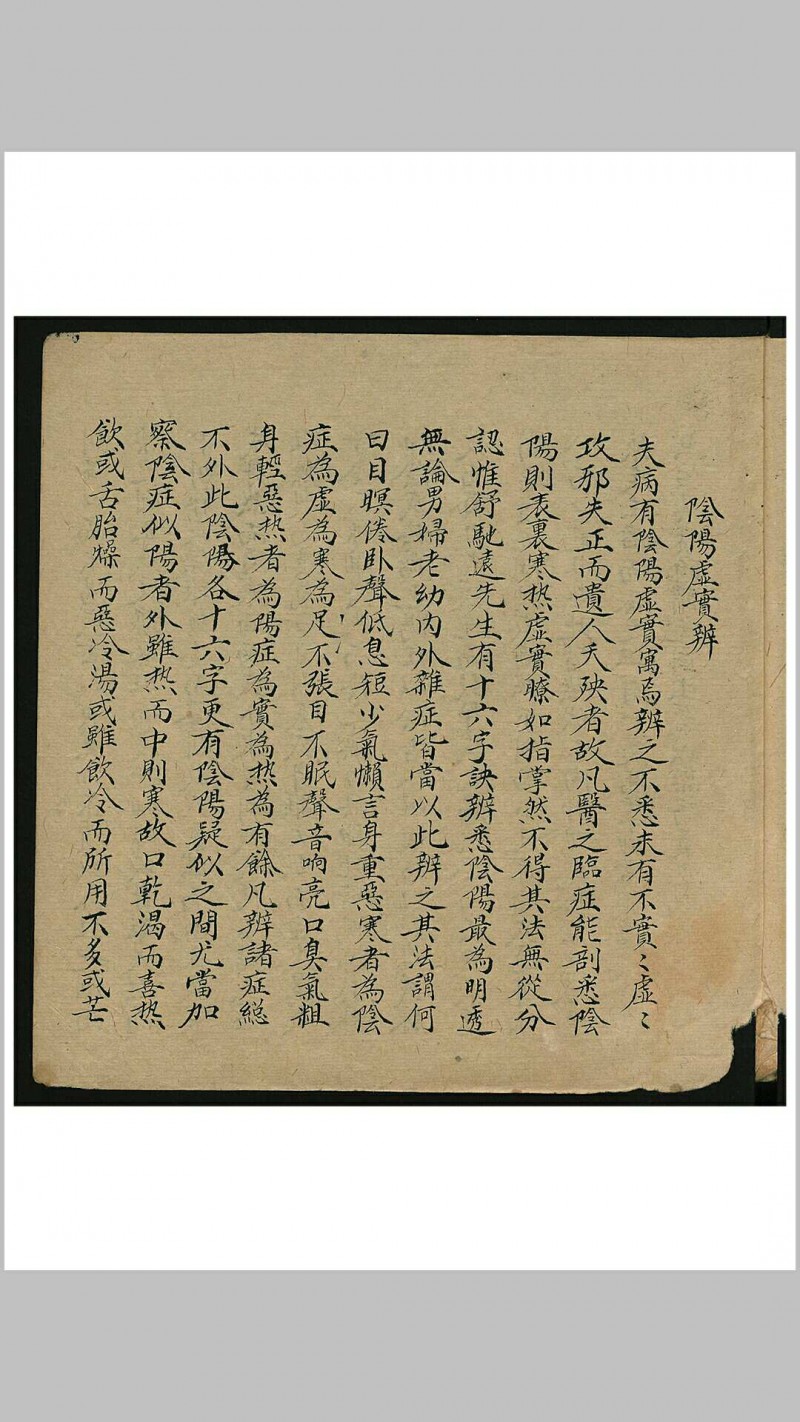 陰陽虛實辨
夫病有陰陽虛實寓焉辨之不悉未有不實〻虛〻
攻邪失正而遺人夭殃者故凡醫之臨症能剖悉陰
陽則表裏寒热虛實瞭如指掌然不得其法無從分
認惟舒馳遠先生有十六字訣辨悉陰陽最為明透
無論男婦老幼内外雜症皆當以此辨之其法謂何
曰目暝倦卧聲低息短少氣懶言身重惡寒者為陰
症為虛為寒為不足張目不眠聲音响亮口臭氣粗
身輕惡热者為陽症為實為热為有餘凡辨諸症総
不外此陰陽各十六字更有陰陽疑似之間尤當加
察陰症似陽者外雖热而中則寒故口乾渴而喜热
飲或舌胎燥而惡冷湯或雖飲冷而所用不多或芒